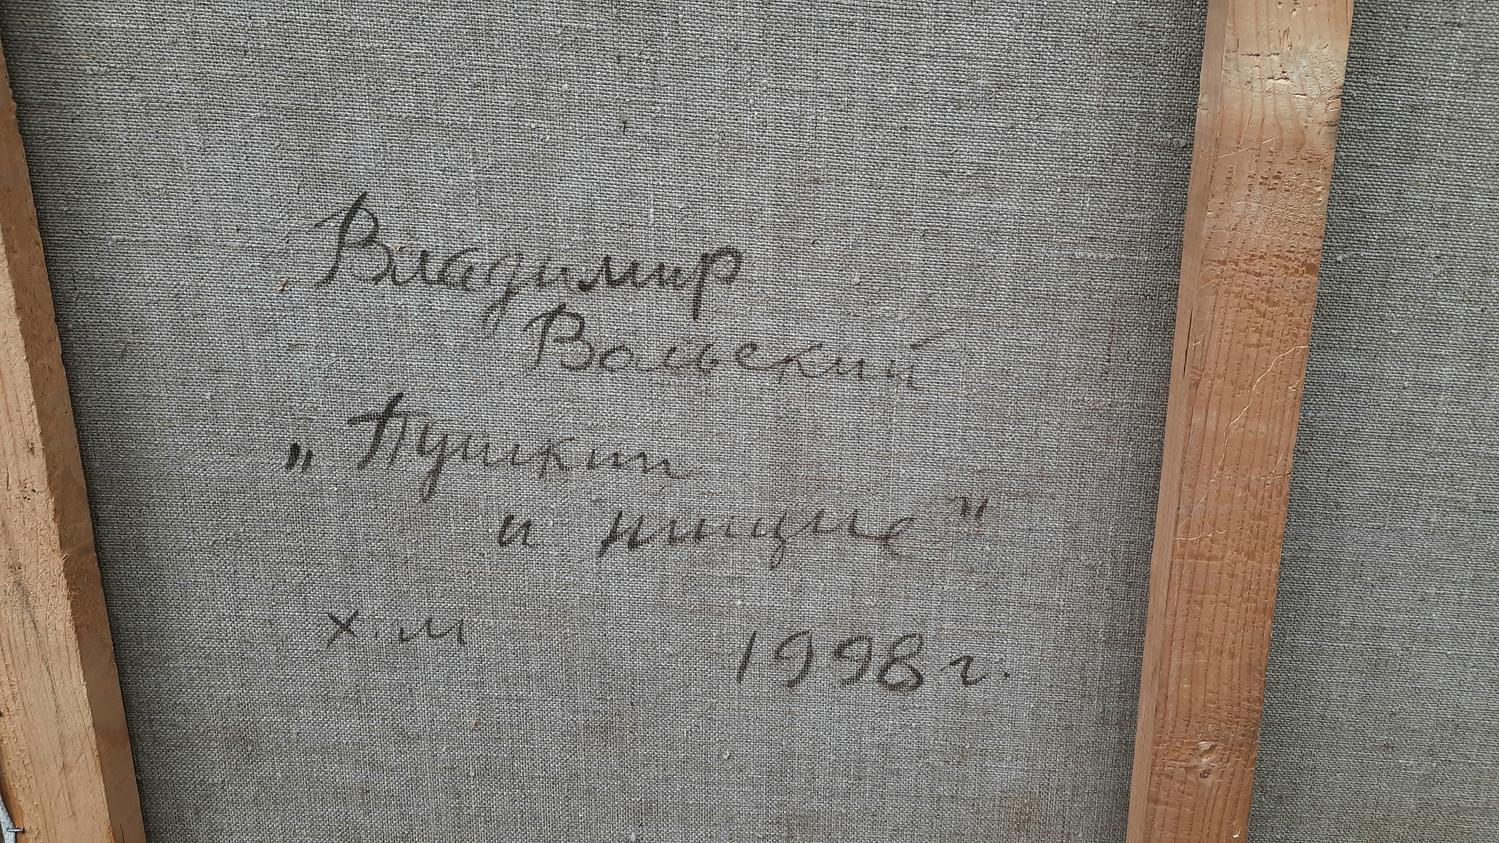 Владимир
Вальский
„Пушкин
и нищие"
х.м
1998 г.